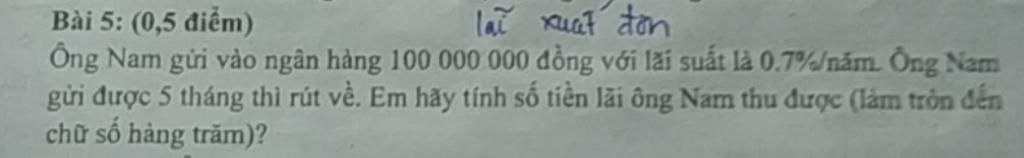 Bài 5: (0,5 điểm) lãi xuất đơn
Ông Nam gửi vào ngân hàng 100 000 000 đồng với lãi suất là 0.7%/năm. Ông Nam
gửi được 5 tháng thì rút về. Em hãy tính số tiền lãi ông Nam thu được (làm tròn đến
chữ số hàng trăm)?